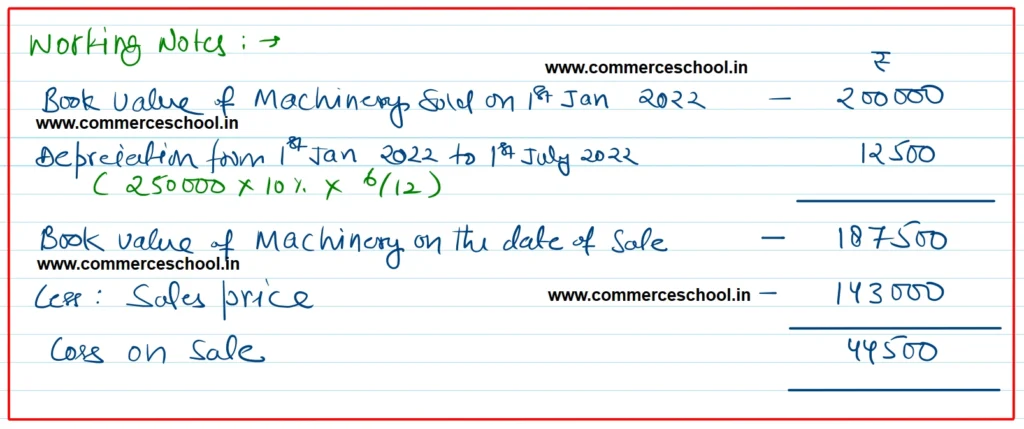 Working Notes : →
www.commerceschool.in ₹
Book Value of Machinery Sold on 1st Jan 2022 — 200000
www.commerceschool.in
Depreciation from 1st Jan 2022 to 1st July 2022 12500
( 250000 × 10% × 6/12 )
Book value of Machinery on the date of Sale — 187500
www.commerceschool.in
Less : Sales price www.commerceschool.in — 143000
Loss on Sale 44500